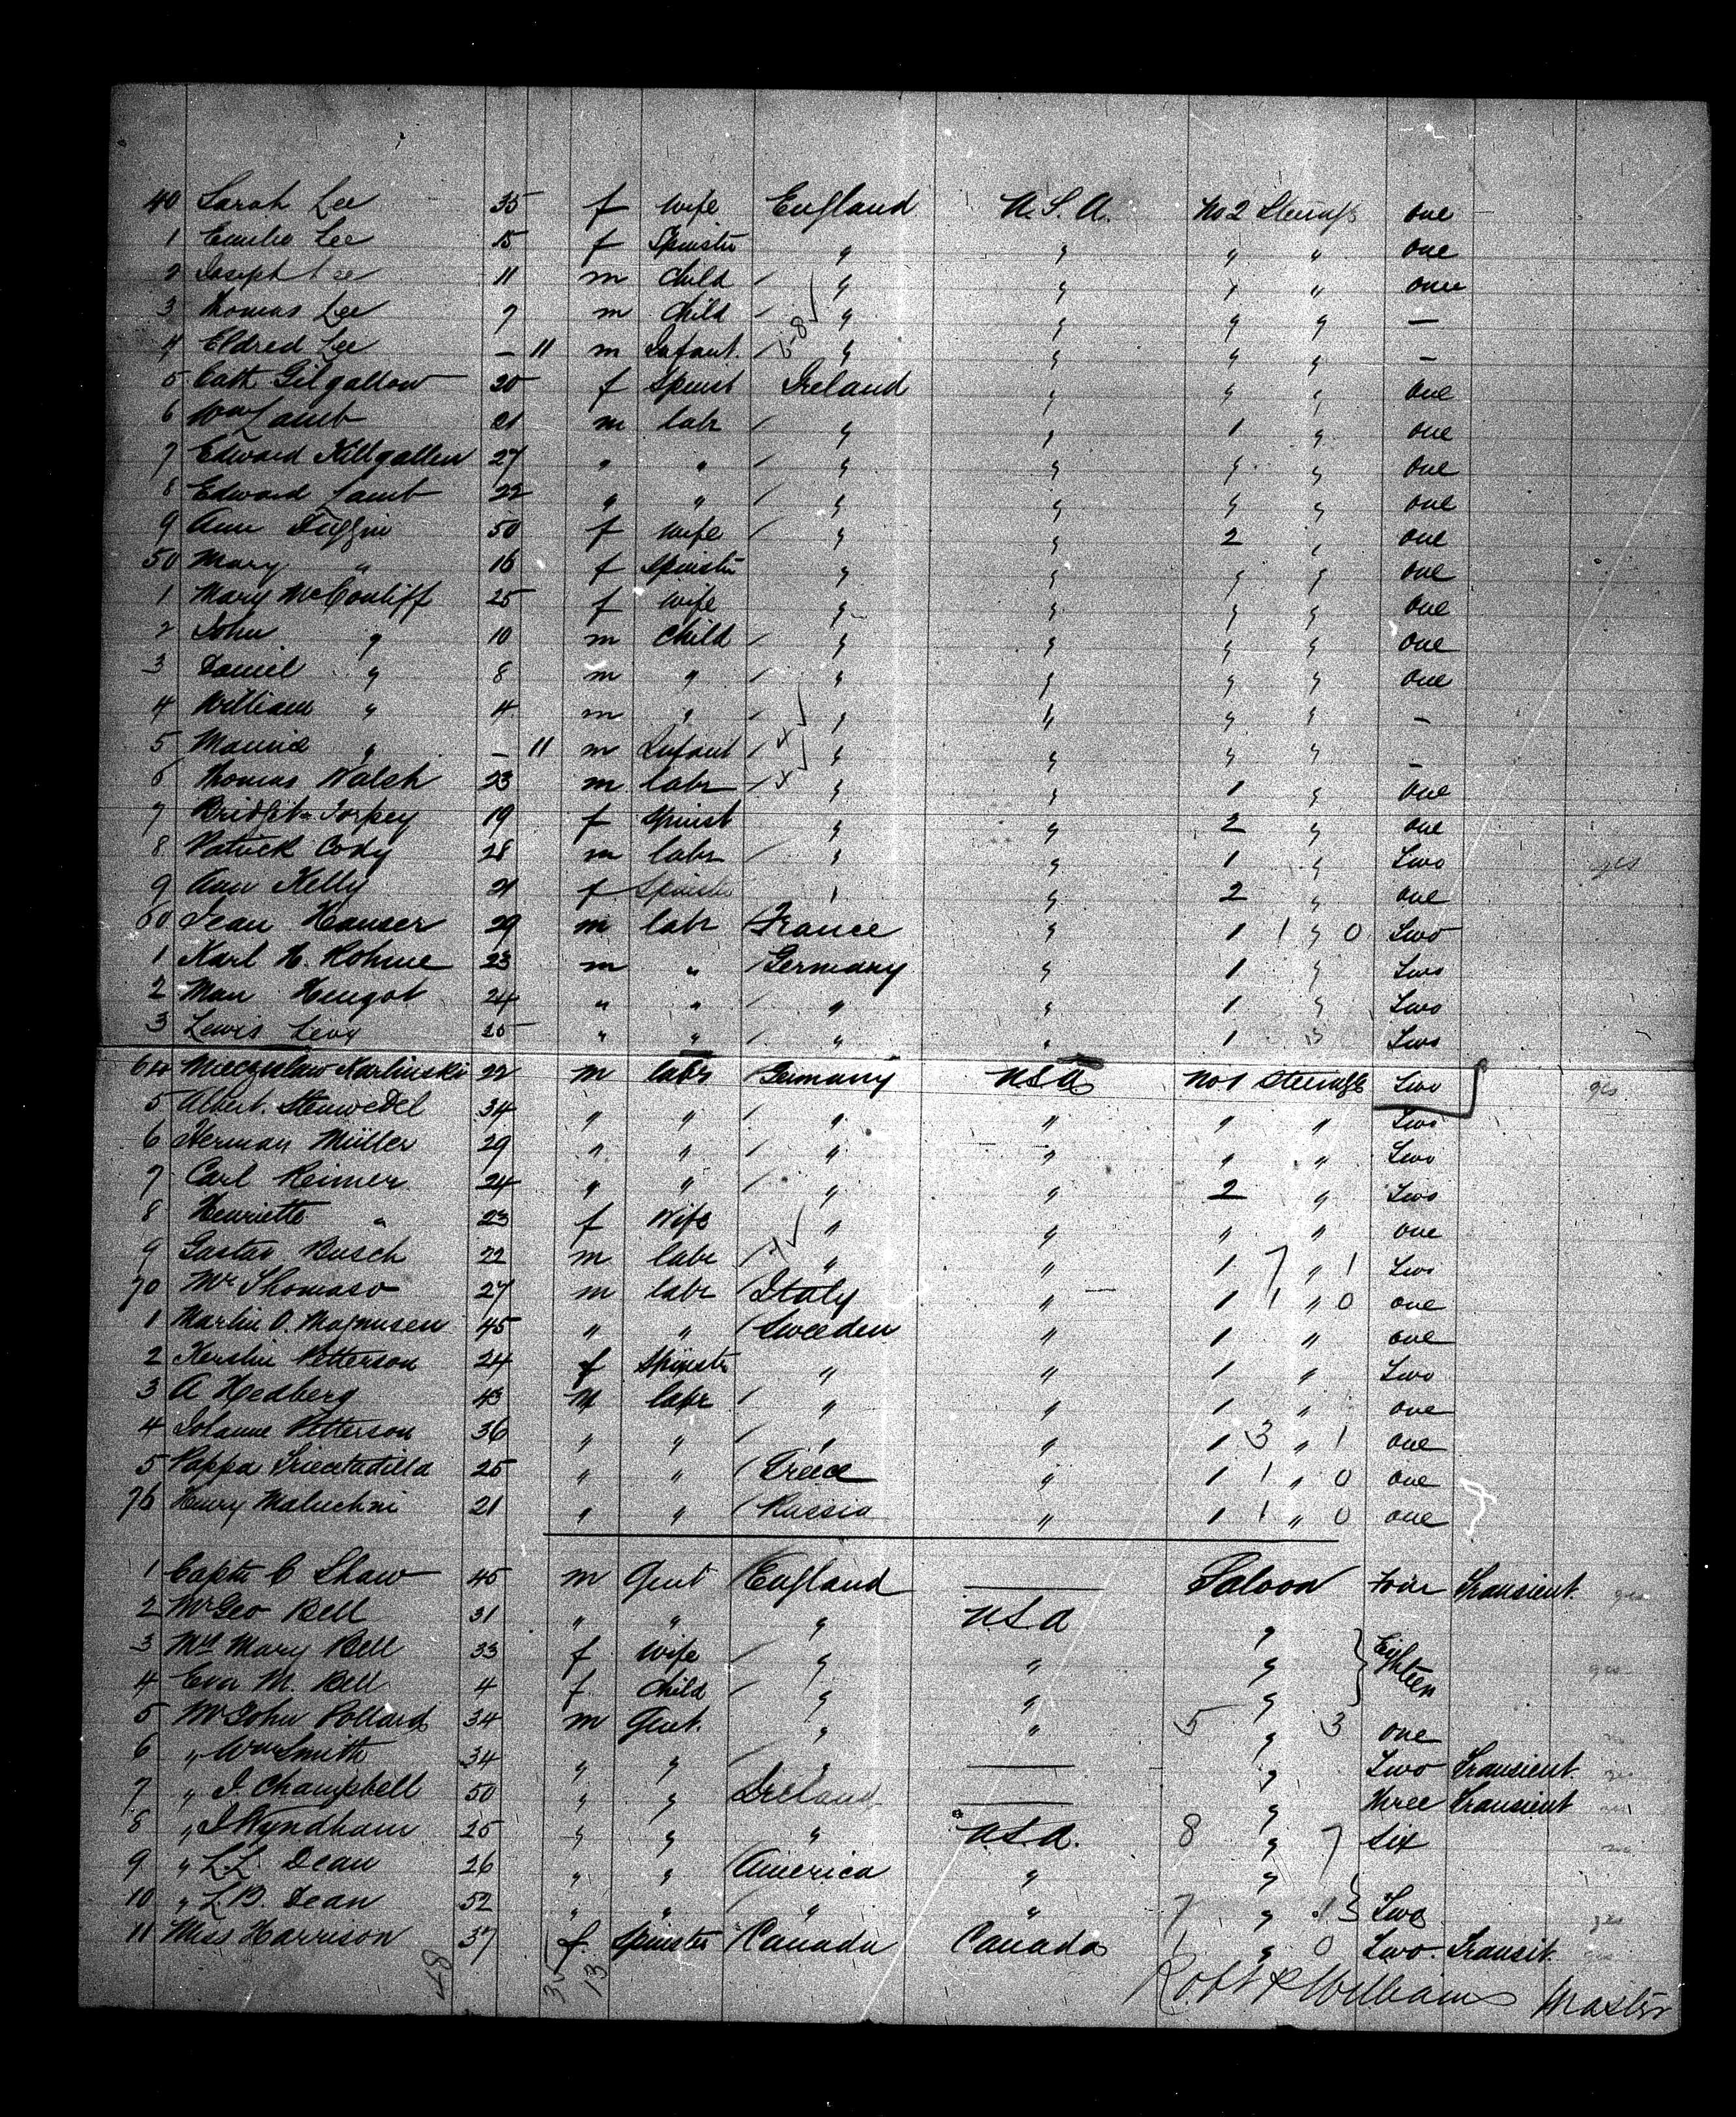 40 Sarah Lee 35 f wife England U.S.A. No 2 Steerage one
1 Emilie Lee 15 f Spinster " " " " one
2 Joseph Lee 11 m Child " " " " one
3 Thomas Lee 7 m Child " " " " —
4 Eldred Lee — 11 m Infant " " " " —
5 Cath Gilgallon 20 f Spinst Ireland " " " one
6 Wm Lamb 21 m labr " " 1 " one
7 Edward Killgallen 27 " " " " " " one
8 Edward Lamb 22 " " " " " " one
9 Ann 50 f wife " " 2 " one
50 Mary " 16 f Spinstr " " " " one
1 Mary McCouliff 25 f wife " " " " one
2 John " 10 m Child " " " " one
3 Daniel " 8 m " " " " " one
4 William " 4 m " " " " " —
5 Maurice " — 11 m Infant " " " " —
6 Thomas Walsh 23 m labr " " 1 " one
7 Bridget Torpey 19 f Spinst " " 2 " one
8 Patrick Cody 28 m labr " " 1 " Two yes
9 Ann Kelly 21 f Spinster " " 2 " one
60 Jean Hauser 29 m labr France " 1 1 " 0 Two
1 Karl H. Rohme 23 m " Germany " 1 " Two
2 Man Hengot 24 " " " " 1 " Two
3 Lewis Levy 25 " " " " 1 3 Two
64 Mieczyslaw Karlinski 22 m labr Germany USA No 1 Steerage Two yes
5 Albert Stenwedel 34 " " " " " " Two
6 Herman Müller 29 " " " " " " Two
7 Carl Reimer 24 " " " " 2 " Two
8 Henriette " 23 f Wife " " " " one
9 Gustav Busch 22 m labr " " 1 7 " 1 Two
70 Mr Thomaso 27 m labr Italy " 1 1 " 0 one
1 Martin O. Magnusen 45 " " Sweeden " 1 " one
2 Kerstin Petterson 24 f Spinstr " " 1 " Two
3 A Hedberg 43 m labr " " 1 " one
4 Johanne Petterson 36 " " " " 1 3 " 1 one
5 Pappa 25 " " Greece " 1 1 " 0 one
76 Henry Maluchni 21 " " Russia " 1 1 " 0 one
1 Captn C Shaw 45 m Gent England — Saloon Four Transient. yes
2 Mr Geo Bell 31 " " " USA "
3 Mrs Mary Bell 33 f wife " " " Eighteen yes
4 Eva M. Bell 4 f Child " " "
5 Mr John Pollard 34 m Gent. " " 5 " 3 one
6 " Wm Smith 34 " " " — " Two Transient
7 " J. Champbell 50 " " Ireland — " Three Transient
8 " J Wyndham 25 " " " U.S.A. 8 " 7 Six
9 " L.L. Dean 26 " " America " "
10 " L.B. Dean 52 " " " " 7 " 13 Two yes
11 Miss Harrison 37 f. Spinster Canada Canada 1 " 0 Two. Transit.
48 13
Robt P Williams Master